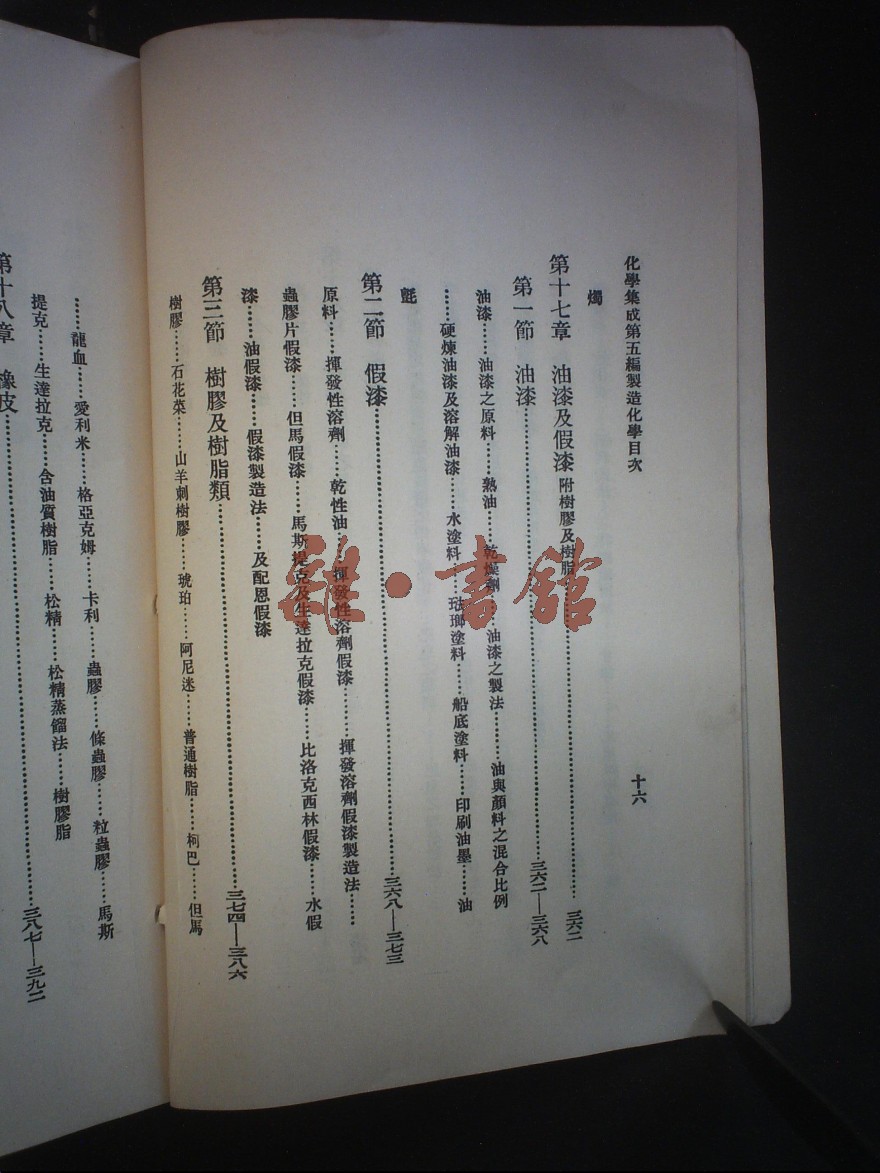 化學集成第五編製造化學目次 十六
燭
第十七章 油漆及假漆 附樹膠及樹脂……三六二
第一節 油漆……三六二—三六八
油漆……油漆之原料……熟油……乾燥劑……油漆之製法……油與顏料之混合比例
……硬煉油漆及溶解油漆……水塗料……琺瑯塗料……船底塗料……印刷油墨……油
氈
第二節 假漆……三六八—三七三
原料……揮發性溶劑……乾性油……揮發性溶劑假漆……揮發溶劑假漆製造法……
蟲膠片假漆……但馬假漆……馬斯提克及生達拉克假漆……比洛克西林假漆……水假
漆……油假漆……假漆製造法……及配恩假漆
第三節 樹膠及樹脂類……三七四—三八六
樹膠……石花菜……山羊刺樹膠……琥珀……阿尼迷……普通樹脂……柯巴……但馬
……龍血……愛利米……格亞克姆……卡利……蟲膠……條蟲膠……粒蟲膠……馬斯
提克……生達拉克……含油質樹脂……松精……松精蒸餾法……樹膠脂
第十八章 橡皮……三八七—三九二
雜·書館